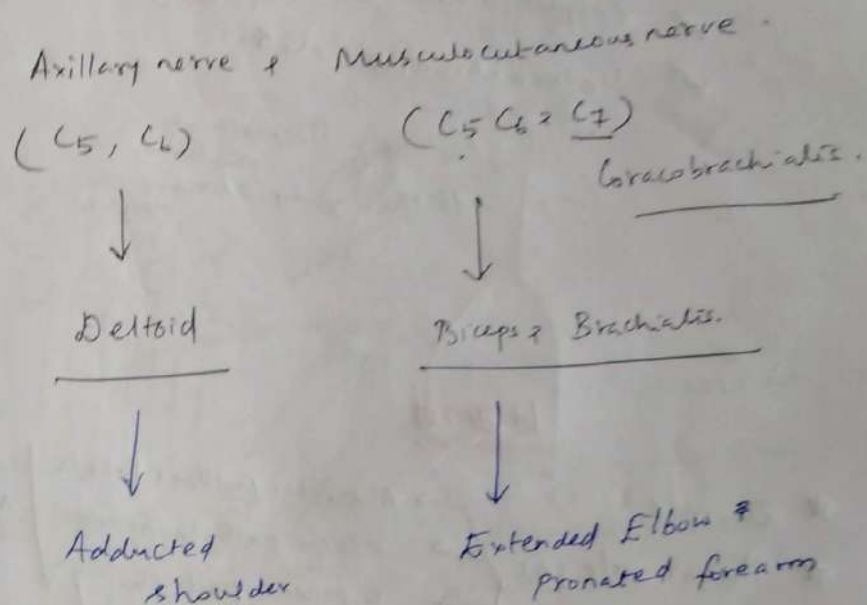 Axillary nerve & Musculocutaneous nerve.
(C5, C6) (C5 C6 & C7)
Coracobrachialis.
Deltoid Biceps & Brachialis.
Adducted Extended Elbow &
shoulder pronated forearm